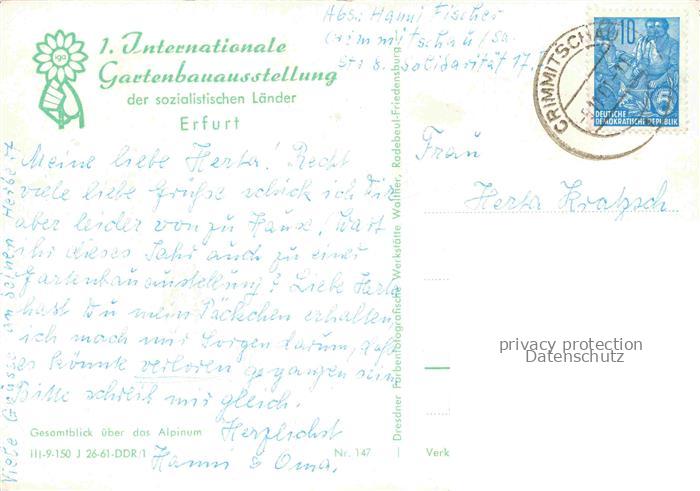 Abs: Hanni Fischer
Crimmitschau/Sa.
Str. d. Solidarität 17.
1. Internationale
Gartenbauausstellung
der sozialistischen Länder
Erfurt
iga
Meine liebe Herta! Recht
viele liebe Grüße schick ich Dir
aber leider von zu Hause. Wart
ihr dieses Jahr auch zu einer
Gartenbauausstellung? Liebe Herta
hast Du mein Päckchen erhalten,
ich mach mir Sorgen darum, daß
es könnte verloren gegangen sein
Bitte schreib mir gleich.
Herzlichst
Hanni & Oma.
Viele Grüße an Deinen Herbert
Gesamtblick über das Alpinum
III-9-150 J 26-61-DDR/1
Nr. 147
Verk
Dresdner Farbenfotografische Werkstätte Walther, Radebeul-Friedensburg
CRIMMITSCHAU
10
5
DEUTSCHE
DEMOKRATISCHE REPUBLIK
Frau
Herta Kratzsch
privacy protection
Datenschutz